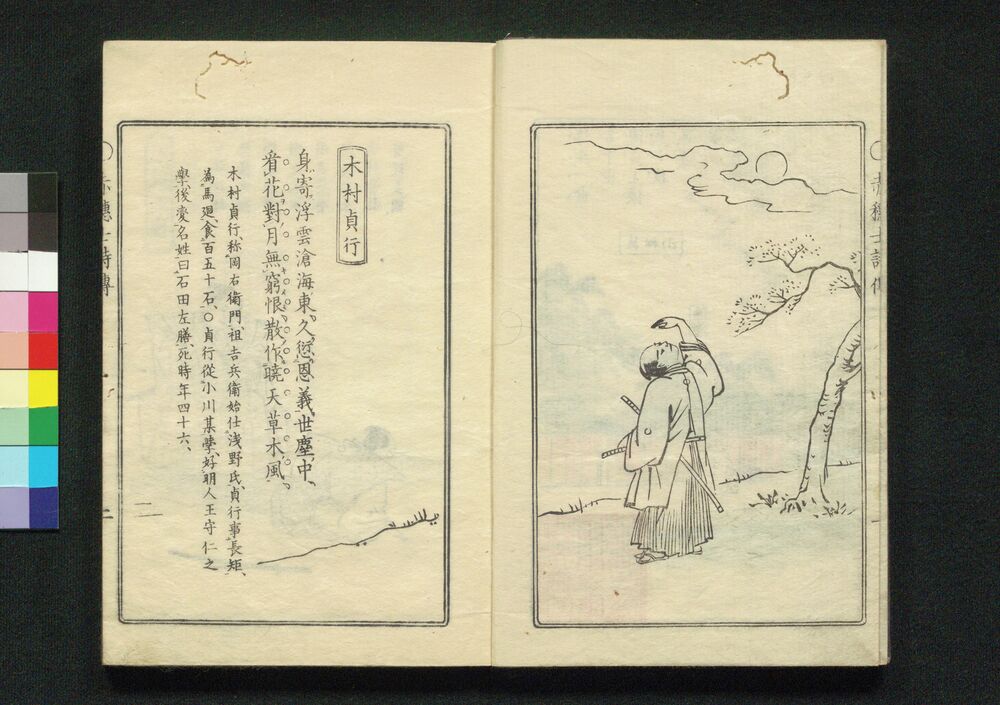 木村貞行
身寄浮雲滄海東、久愆恩義世塵中、
看花對月無窮恨、散作曉天草木風。
木村貞行、称岡右衛門、祖吉兵衛始仕浅野氏、貞行事長矩、
為馬廻、食百五十石、〇貞行從小川某學、好明人王守仁之
學、後変名姓曰石田左膳、死時年四十六、
赤穗士詩傳
二
赤穗士詩傳